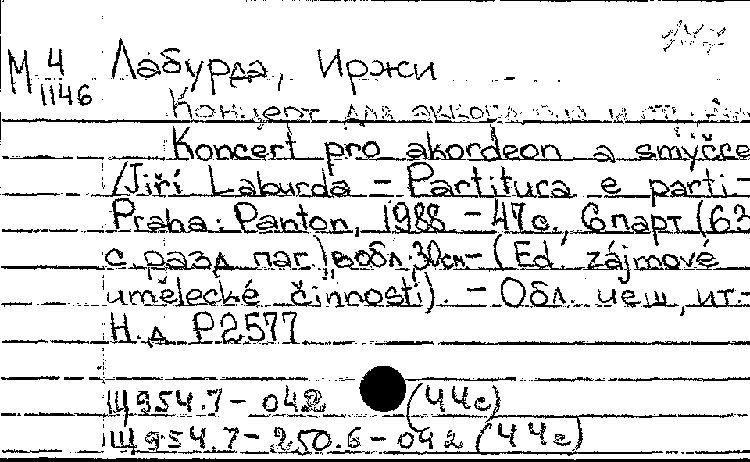 М 4 Лабурда, Иржи
1146
Концерт для аккордеона и
Koncert pro akordeon a smyčce
/Jiří Laburda - Partitura e parti-
Praha: Panton, 1988 - 47 с., 6 парт (63
с. разд. паг.), в обл. 30 см - (Ed zájmové
umělecké činnosti). - Обл. чеш, ит.-
Н. д P2577
Щ954.7 - 042 (44е)
Щ954.7 - 250.6 - 042 (44е)